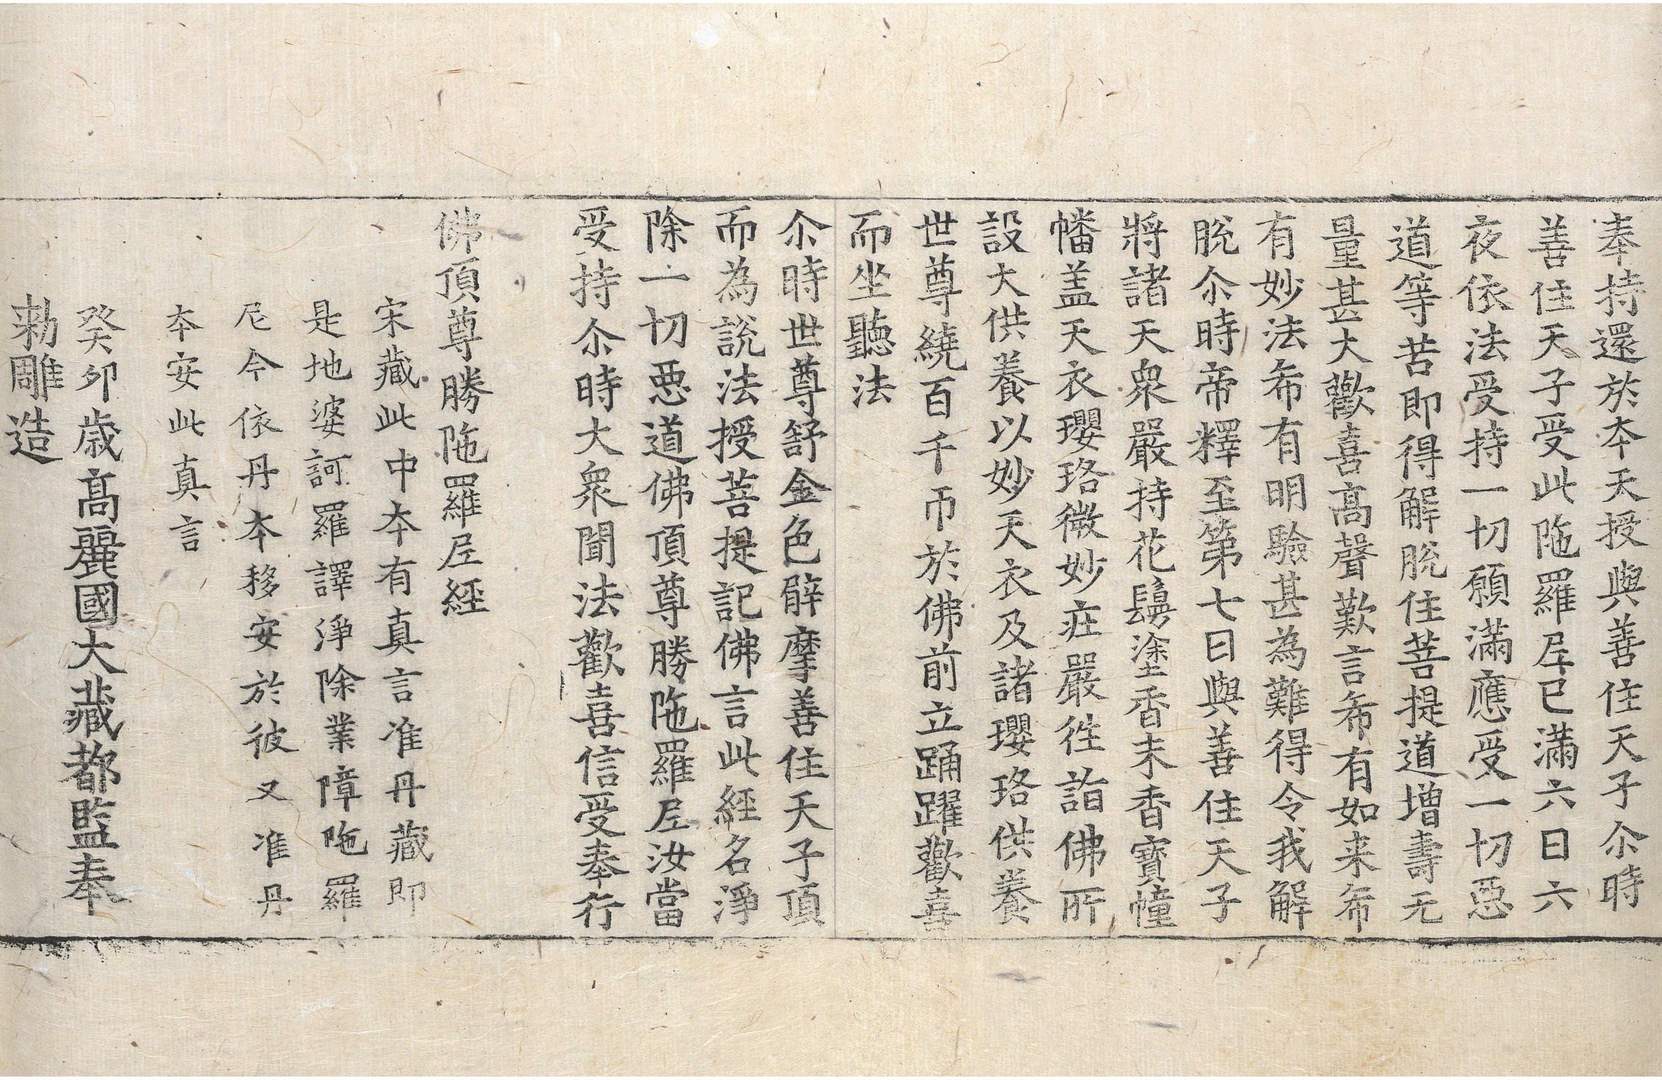 奉持還於夲天授與善住天子尒時
善住天子受此陁羅尼已滿六日六
夜依法受持一切願滿應受一切惡
道等苦即得解脫住菩提道增壽无
量甚大歡喜髙聲歎言希有如来希
有妙法希有明驗甚為難得令我解
脫尒時帝釋至第七日與善住天子
將諸天衆嚴持花鬘塗香末香寶幢
幡盖天衣瓔珞微妙莊嚴徃詣佛所
設大供養以妙天衣及諸瓔珞供養
世尊繞百千帀於佛前立踊躍歡喜
而坐聽法
尒時世尊舒金色臂摩善住天子頂
而為說法授菩提記佛言此經名淨
除一切惡道佛頂尊勝陁羅尼汝當
受持尒時大衆聞法歡喜信受奉行
佛頂尊勝陁羅尼經
宋藏此中夲有真言准丹藏即
是地婆訶羅譯淨除業障陁羅
尼今依丹夲移安於彼又准丹
夲安此真言
癸卯歳髙麗國大藏都監奉
勑雕造